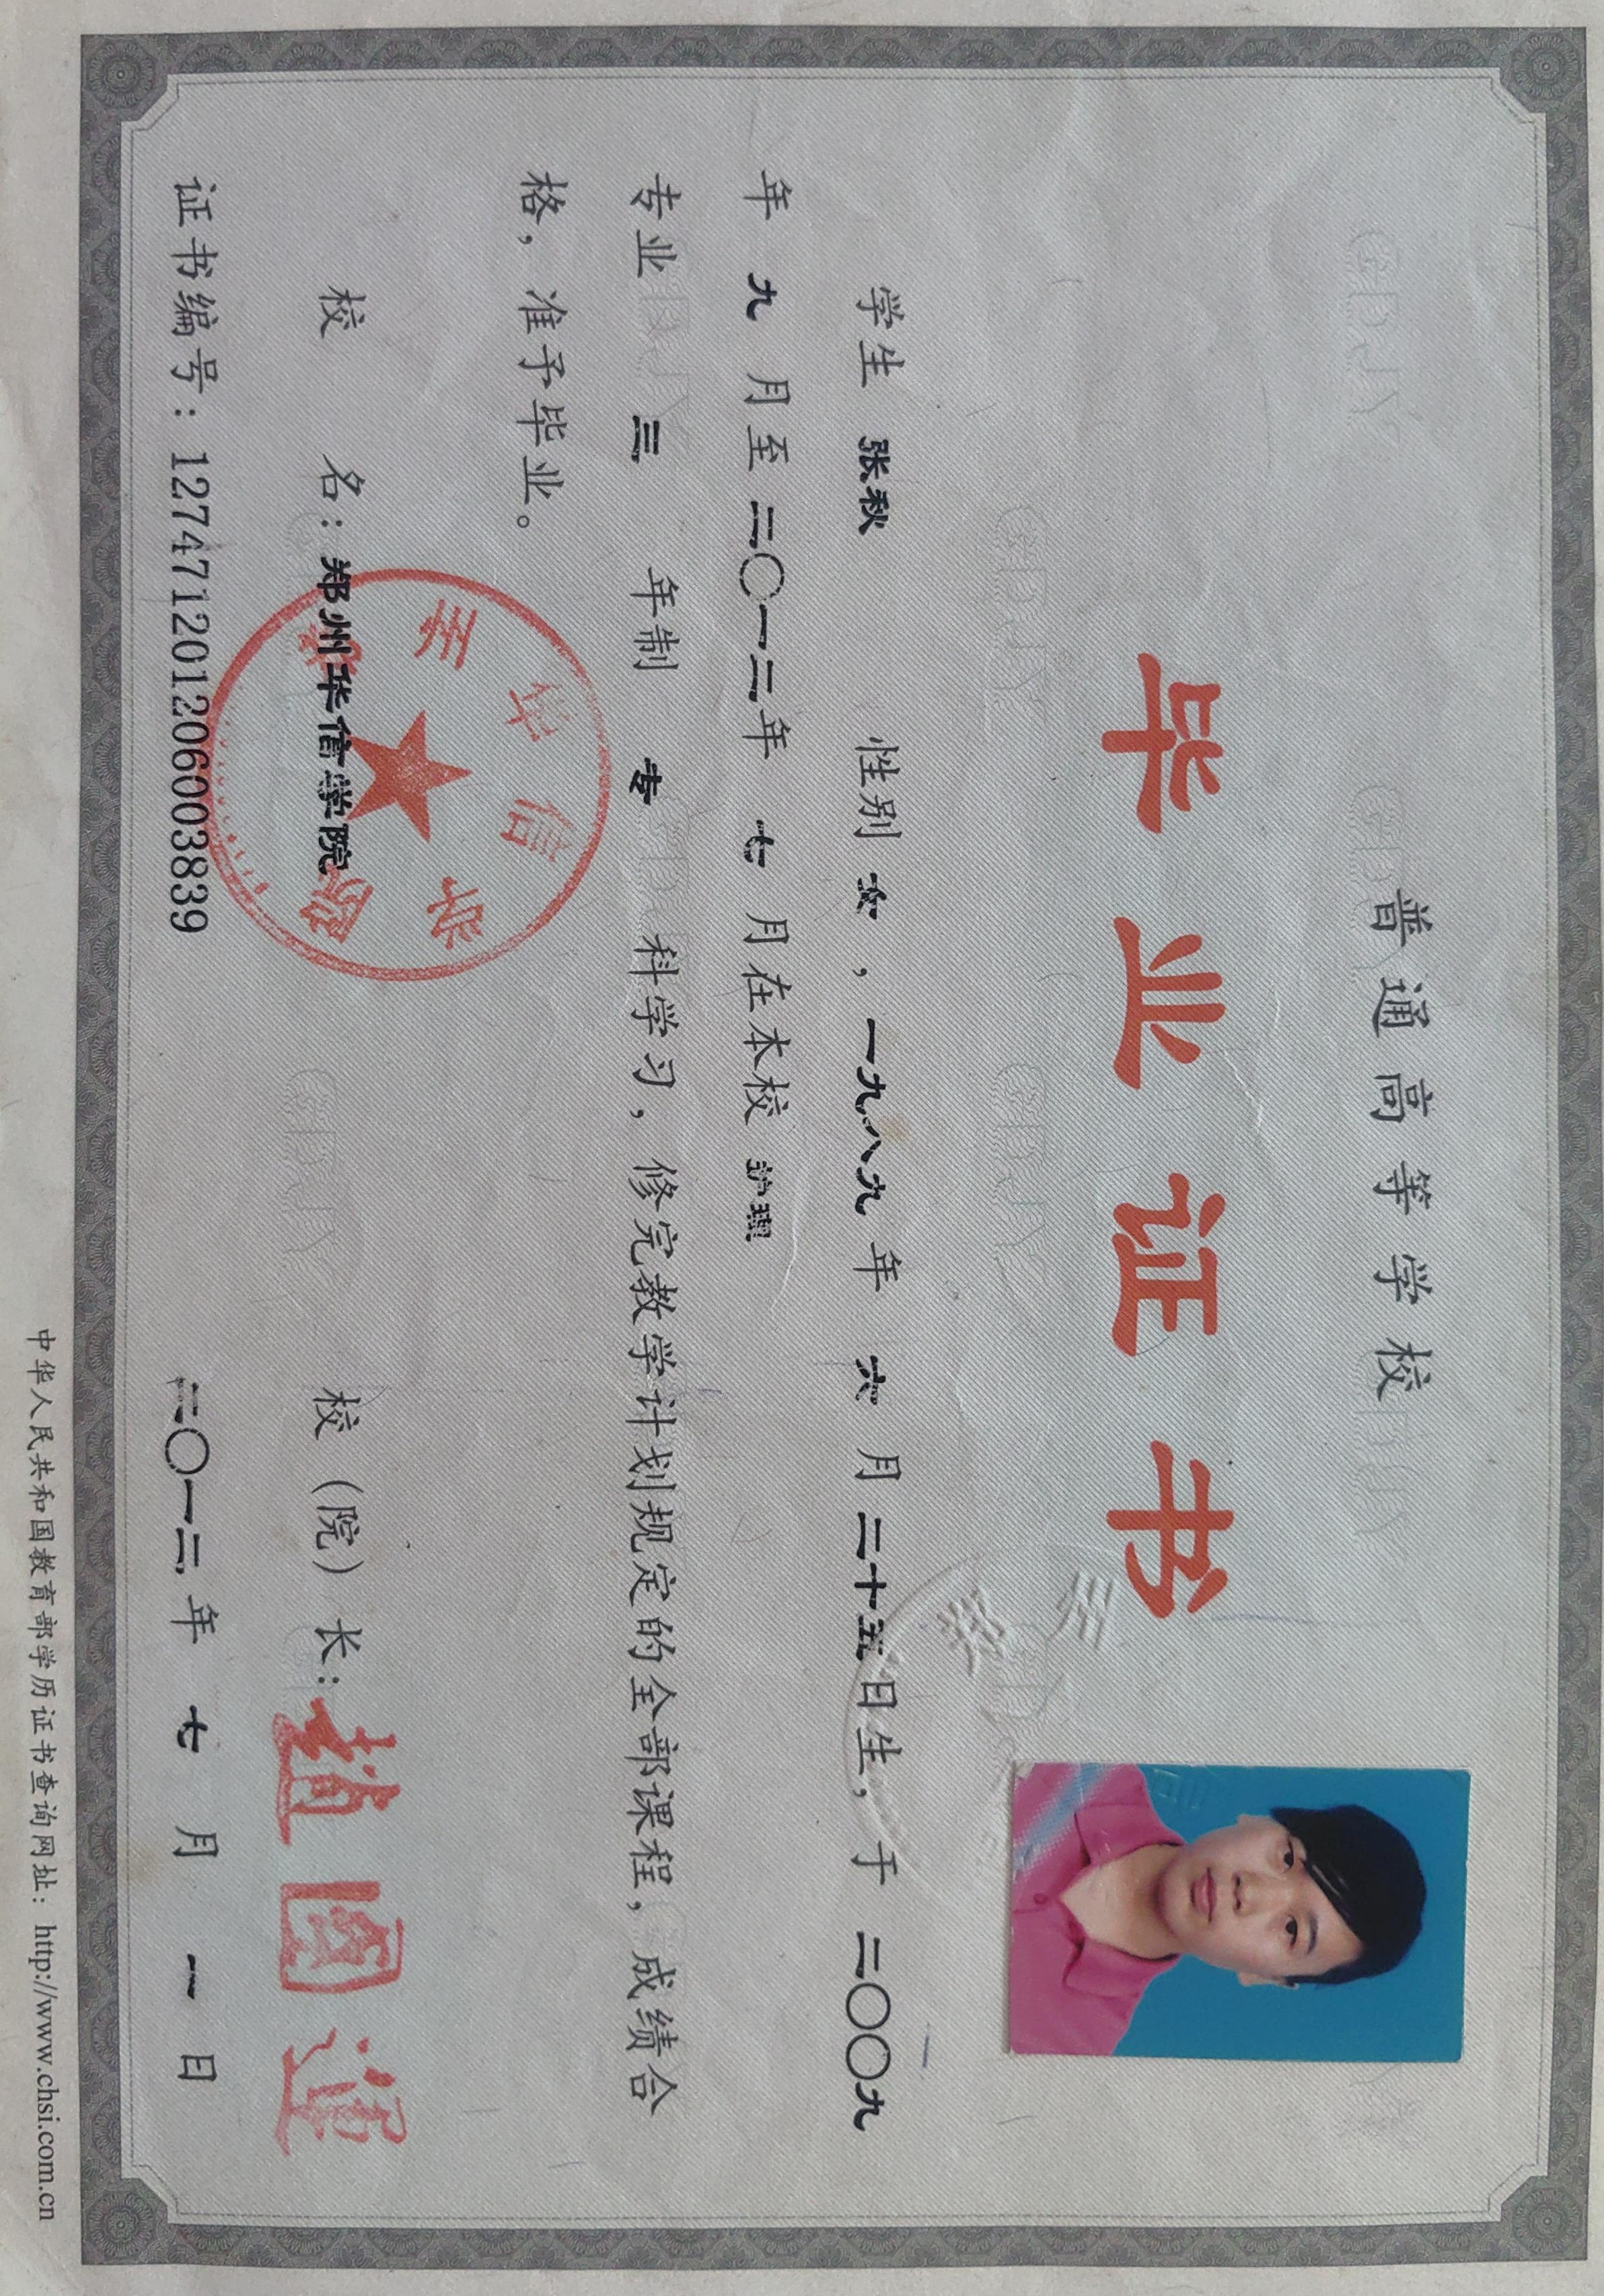 普通高等学校
毕业证书
学生 张秋 性别 女，一九八九年 六 月二十五日生，于 二〇〇九
年 九 月至二〇一二年 七 月在本校 护理
专业 三 年制 专 科学习，修完教学计划规定的全部课程，成绩合
格，准予毕业。
校 名：郑州华信学院 校（院）长：趙國運
证书编号：127471201206003839 二〇一二年 七 月 一 日
中华人民共和国教育部学历证书查询网址：http://www.chsi.com.cn